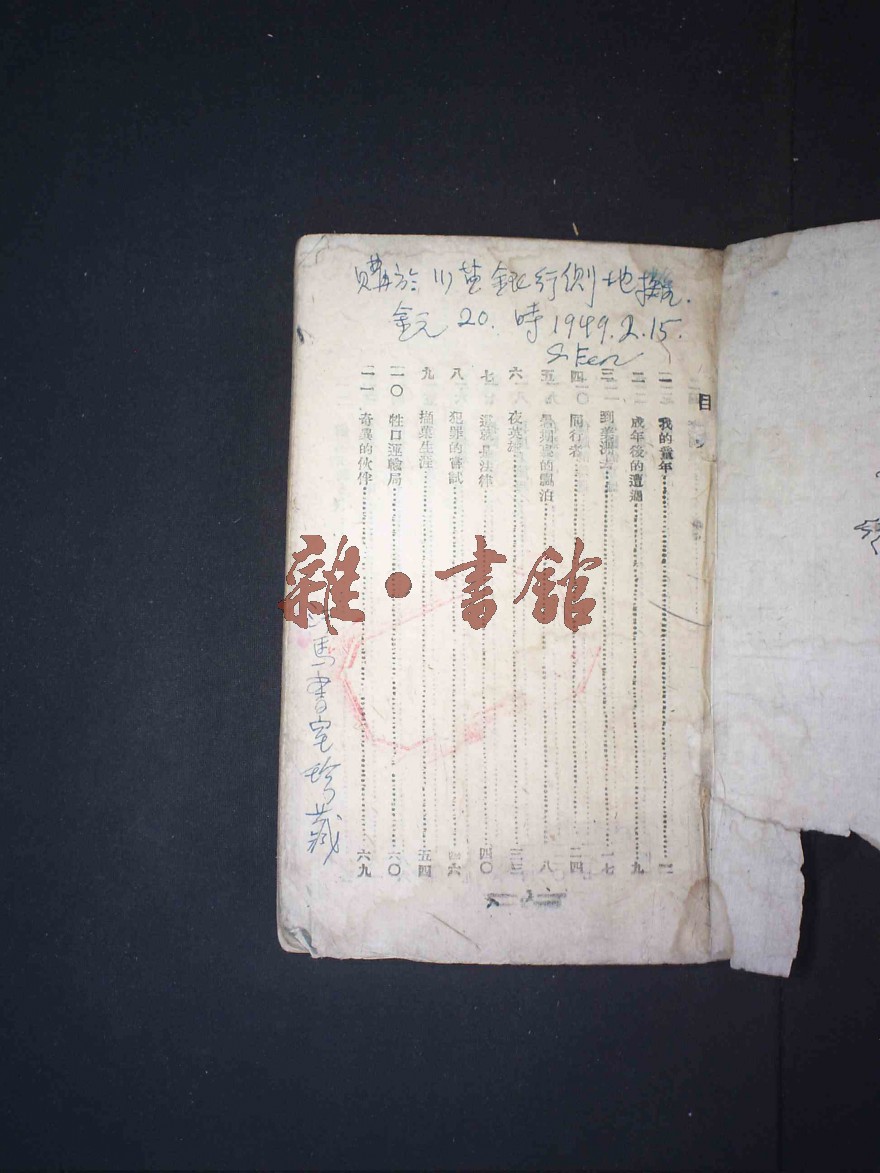 購於川黄銀行側地攤.
金元20. 時1949.2.15.
目
一 我的童年 一
二 成年後的遭遇 九
三 到美洲去 一七
四 同行者 二四
五 的飄泊 八
六 夜英雄 三三
七 法律 四〇
八 犯罪的嘗試 四六
九 摘菓生涯 五四
一〇 牲口運輸局 六〇
一一 奇異的伙伴 六九
馬書室珍藏
雜·書館